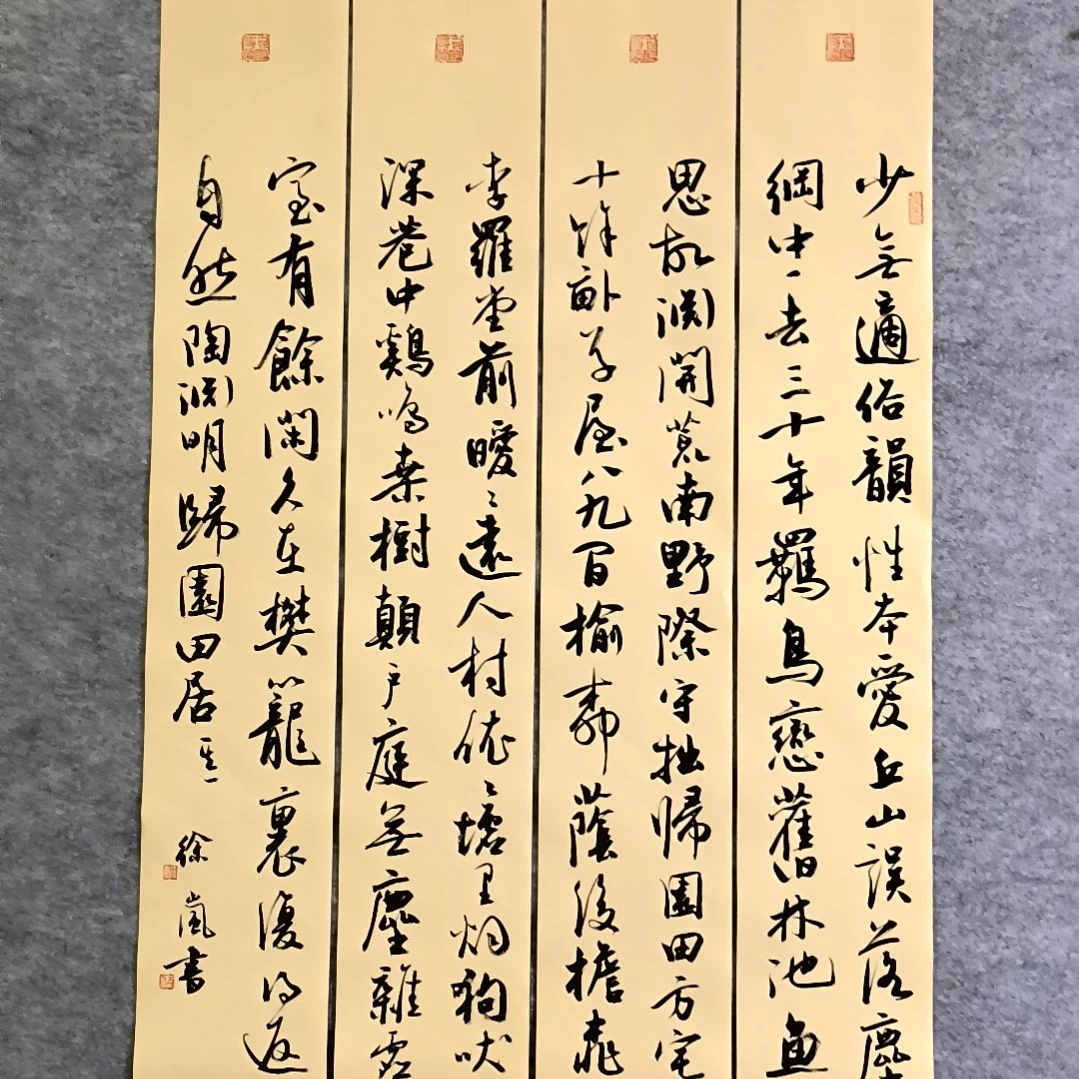 少無適俗韻性本愛丘山誤落塵
網中一去三十年羈鳥戀舊林池魚
思故淵開荒南野際守拙歸園田方宅
十餘畝草屋八九間榆柳蔭後檐桃
李羅堂前曖々遠人村依々墟里烟狗吠
深巷中鷄鳴桑樹顛戶庭無塵雜虛
室有餘閑久在樊籠裏復得返
自然陶淵明歸園田居其一
徐嵐書